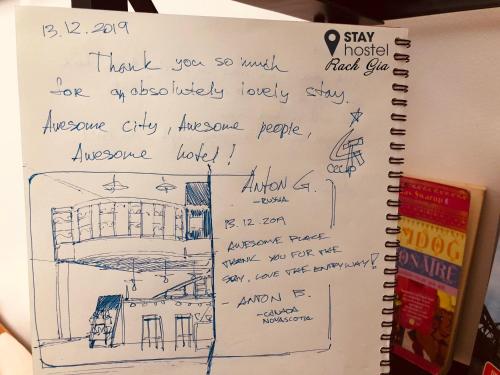 13.12.2019
STAY
hostel
Rach Gia
Thank you so much
for an absolutely lovely stay.
Awesome city, Awesome people,
Awesome hotel!
ANTON G.
- RUSSIA
13.12.2019
AWESOME PLACE
THANK YOU FOR THE
STAY. LOVE THE ENTRYWAY!
- ANTON B.
- CANADA
NOVASCOTIA